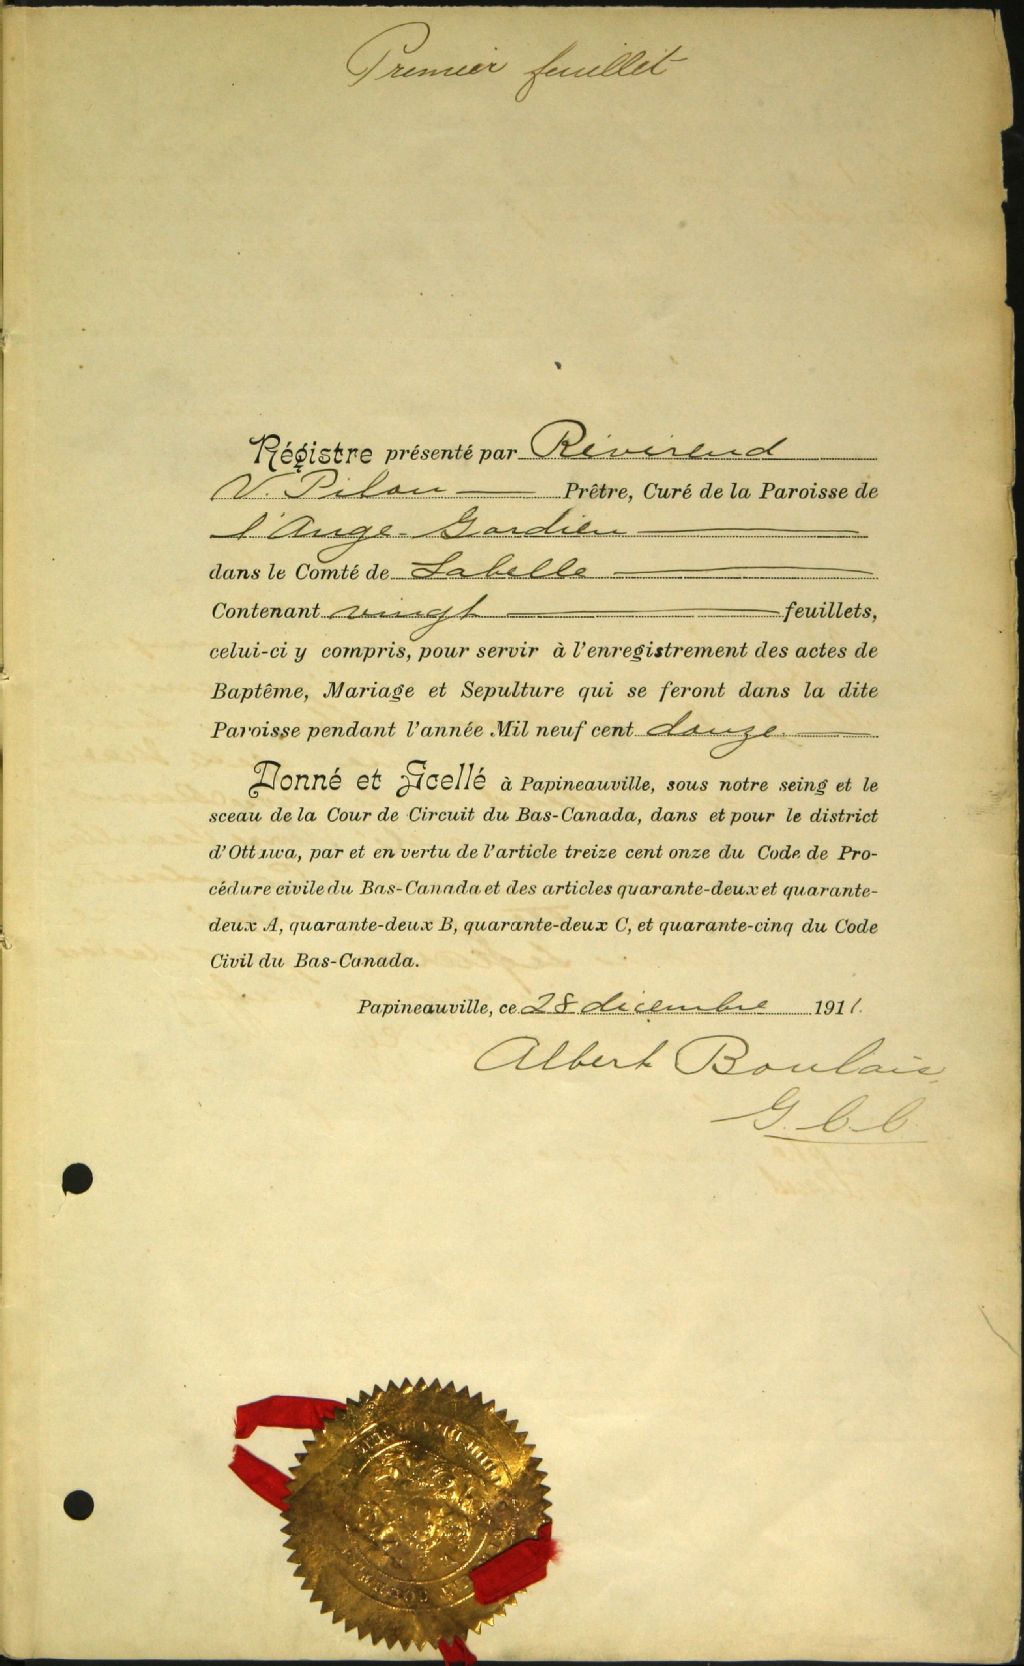 Premier feuillet
Régistre présenté par Révérend
V. Pilon Prêtre, Curé de la Paroisse de
l'Ange-Gardien
dans le Comté de Labelle
Contenant vingt feuillets,
celui-ci y compris, pour servir à l'enregistrement des actes de
Baptême, Mariage et Sepulture qui se feront dans la dite
Paroisse pendant l'année Mil neuf cent douze
Donné et Scellé à Papineauville, sous notre seing et le
sceau de la Cour de Circuit du Bas-Canada, dans et pour le district
d'Ottawa, par et en vertu de l'article treize cent onze du Code de Pro-
cédure civile du Bas-Canada et des articles quarante-deux et quarante-
deux A, quarante-deux B, quarante-deux C, et quarante-cinq du Code
Civil du Bas-Canada.
Papineauville, ce 28 décembre 1911.
Albert Boulais,
G.C.C.